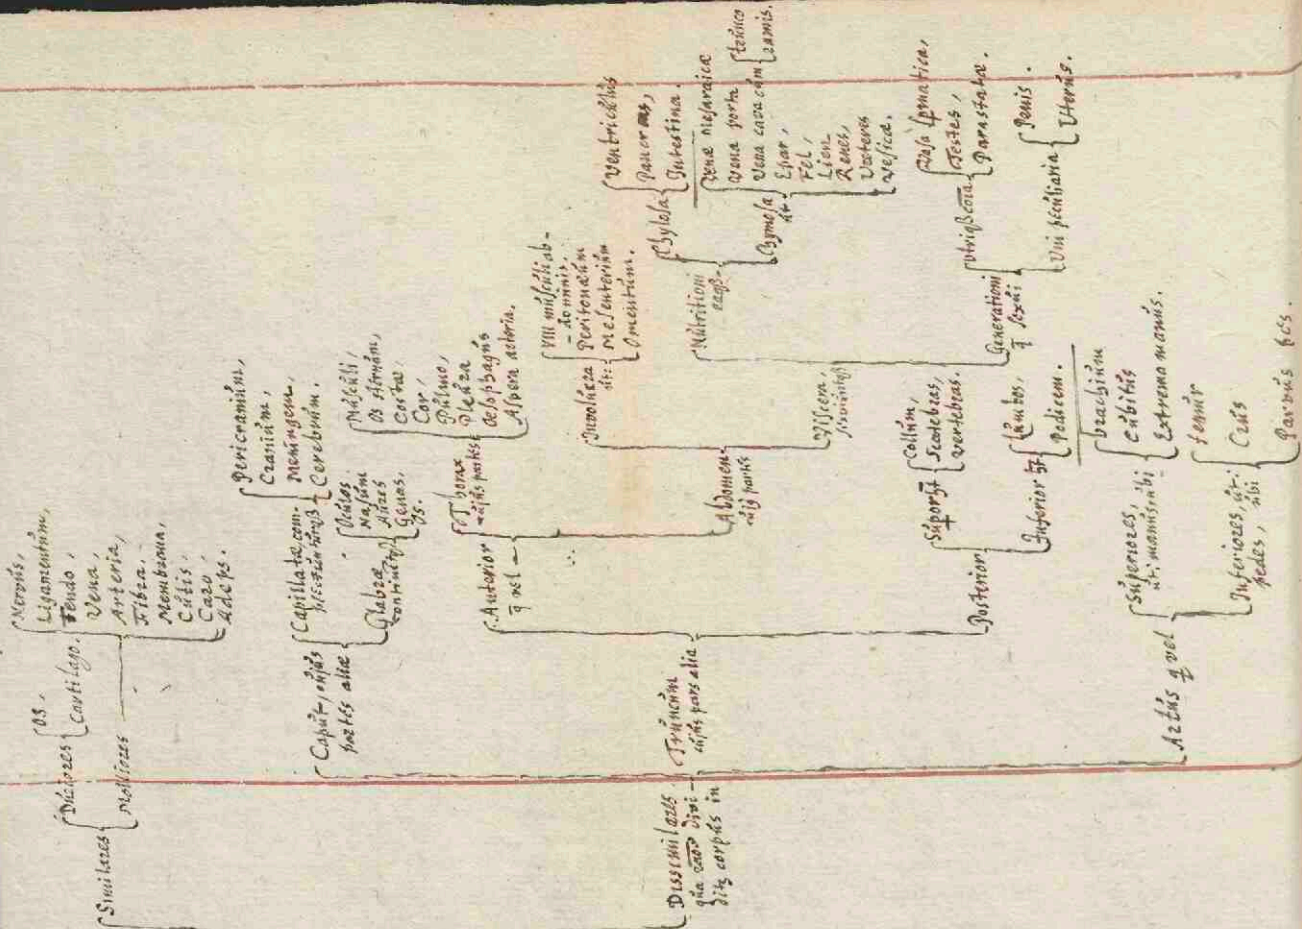 Similares
Duriores
Os,
Cartilago.
Molliores
Nervús,
Ligamentúm,
Tendo,
Vena,
Arteria,
Fibra,
Membrana,
Cútis,
Caro,
Adeps.
Dissimilares
divi-
corpús in
Capút, cújús
partes aliæ
Capillatæ com-
Pericraniúm,
Craniúm,
Meningem,
Cerebrúm.
Glabræ
continent
Oculos
Nasúm
Aúres
Genas,
Os.
Trúncúm
cújús pars alia
Anterior
q vel
Thorax
cújús partes
Múscúli,
Os sternúm,
Costæ.
Cor,
Púlmo,
Pleúra
Oesophagús
Aspera arteria.
Abdomen
cújs partes
Involúcra
út:
VIII múscúli ab-
dominis.
Peritonæúm
Mesenteriúm
Omentúm.
Viscera,
Nútritioni
Chylosa
Ventricúlús
Pancreas,
Intestina.
Chymosa
út.
Venæ Mesaraicæ
Vena porta
Vena cava cúm
trúnco
ramis.
Epar,
Fel,
Lien
Renes,
Ureteres
Vesica.
Generationi
q sexúi
Vasa spmatica,
Testes,
Parastatæ.
Uni pecúliaria
Penis.
Uterús.
Posterior
Súpor
Collúm,
vertebras.
Inferior
Lúmbos,
Podicem.
Artús q vel
Súperiores,
úti manús úbi
brachiúm
Cúbitús
Extrema manús.
Inferiores, út:
pedes, úbi
femúr
Crús
Parvús pes.